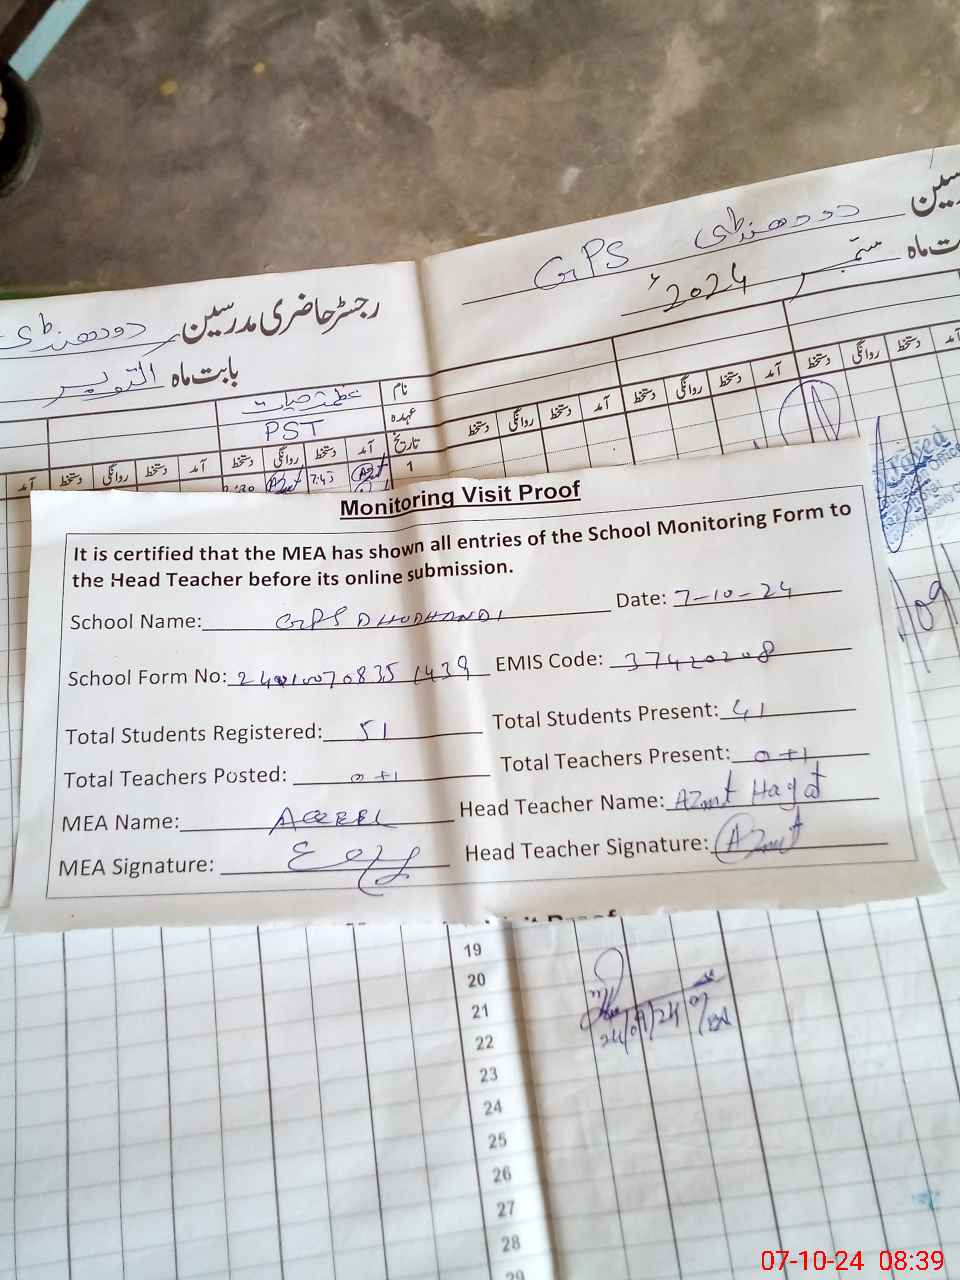 رجسٹر حاضری مدرسین دودھنڈی
بابت ماہ اکتوبر
نام عظمت حیات
عہدہ PST
تاریخ آمد دستخط روانگی دستخط آمد دستخط روانگی دستخط آمد
1 Azmt 7:45 Azmt
سین دودھنڈی GPS
ت ماہ ستمبر 2024ء
آمد دستخط روانگی دستخط آمد دستخط روانگی دستخط آمد روانگی دستخط
Monitoring Visit Proof
It is certified that the MEA has shown all entries of the School Monitoring Form to
the Head Teacher before its online submission.
School Name: GPS DHUDHANDI Date: 7-10-24
School Form No: 24 1439 EMIS Code: 37420208
Total Students Registered: 51 Total Students Present: 41
Total Teachers Posted: 0+1 Total Teachers Present: 0+1
MEA Name: AQEEL Head Teacher Name: Azmt Hayat
MEA Signature: Head Teacher Signature: Azmt
19
20
21
22
23
24
25
26
27
28
29
24/09/24
07-10-24 08:39